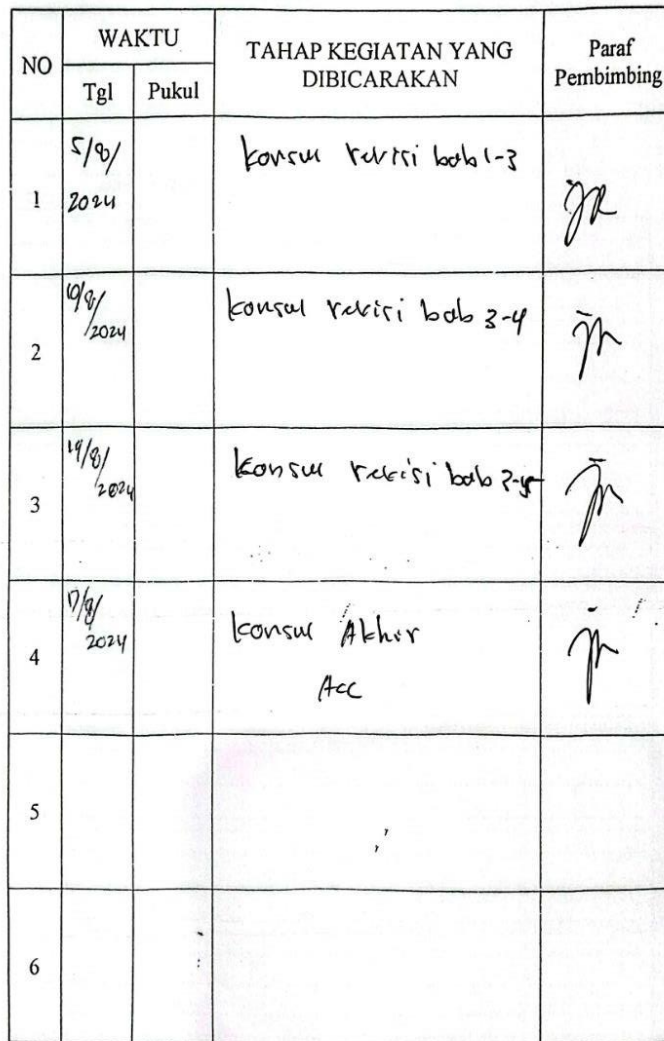 NO WAKTU TAHAP KEGIATAN YANG DIBICARAKAN Paraf Pembimbing
Tgl Pukul
1 5/8/ 2024 konsul revisi bab 1-3
2 /8/ 2024 konsul revisi bab 3-4
3 14/8/ 2024 konsul revisi bab
4 17/8/ 2024 konsul Akhir
Acc
5
6